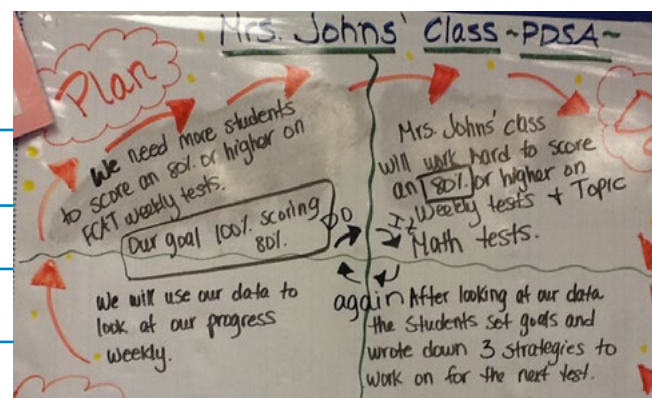 Mrs. Johns' Class ~PDSA~
Plan
We need more students
to score an 80% or higher on
FCAT weekly tests.
Our goal 100% scoring
80%.
Mrs. Johns' class
will work hard to score
an 80% or higher on
Weekly tests + Topic
Math tests.
DO
It
again
We will use our data to
look at our progress
weekly.
After looking at our data
the students set goals and
wrote down 3 strategies to
work on for the next test.